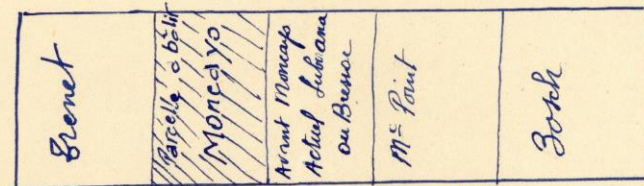 Brenet
Parcelle à bâtir
Moncayo
Avant Moncayo
Actuel Lubiana
ou Bressoc
Mme Point
Bosch